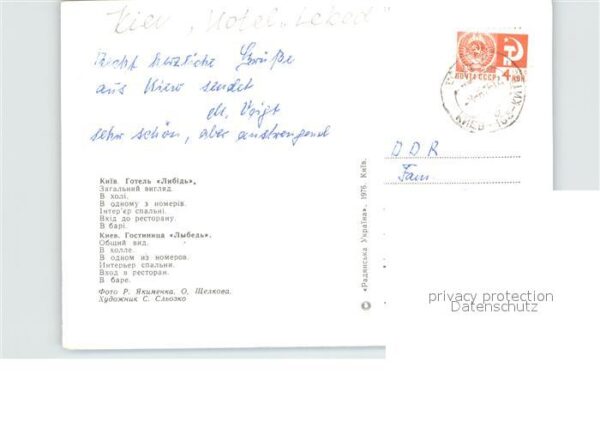 Kiew, Hotel „Lebed"
Recht herzliche Grüße
aus Kiew sendet
M. Voigt
sehr schön, aber anstrengend
ПОЧТА СССР 4 КОП
КИЕВ
DDR
Fam.
Київ. Готель «Либідь».
Загальний вигляд.
В холі.
В одному з номерів.
Інтер'єр спальні.
Вхід до ресторану.
В барі.
Киев. Гостиница «Лыбедь».
Общий вид.
В холле.
В одном из номеров.
Интерьер спальни.
Вход в ресторан.
В баре.
Фото Р. Якименка, О. Щелкова.
Художник С. Сльозко
«Радянська Україна», 1976. Київ.
privacy protection
Datenschutz